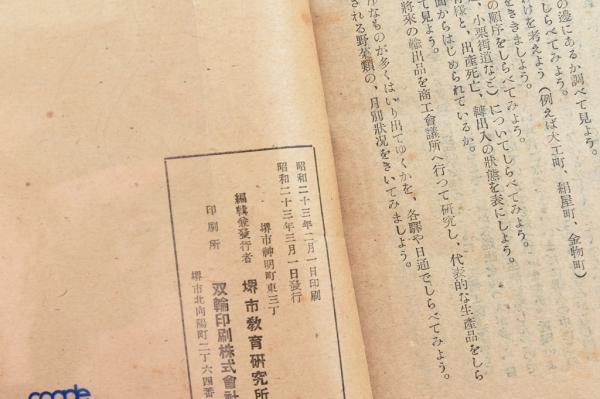 の邊にあるか調べて見よう。
しらべてみよう。
けを考えよう（例えば大工町、絹屋町、金物町）
をききましよう。
の順序をしらべてみよう。
、小栗街道など）についてしらべてみよう。
樣と、出產死亡、轉出入の狀態を表にしよう。
面からはじめられているか。
て見よう。
將來の輸出品を商工會議所へ行つて硏究し、代表的な生產品をしら
んなものが多くはいり出てゆくかを、各驛や日通でしらべてみよう。
される野菜類の、月別狀況をきいてみましよう。
昭和二十三年二月一日印刷
昭和二十三年三月一日發行
堺市神明町東三丁
編輯兼發行者 堺市敎育硏究所
印刷所 双輪印刷株式會社
堺市北向陽町二丁六四番